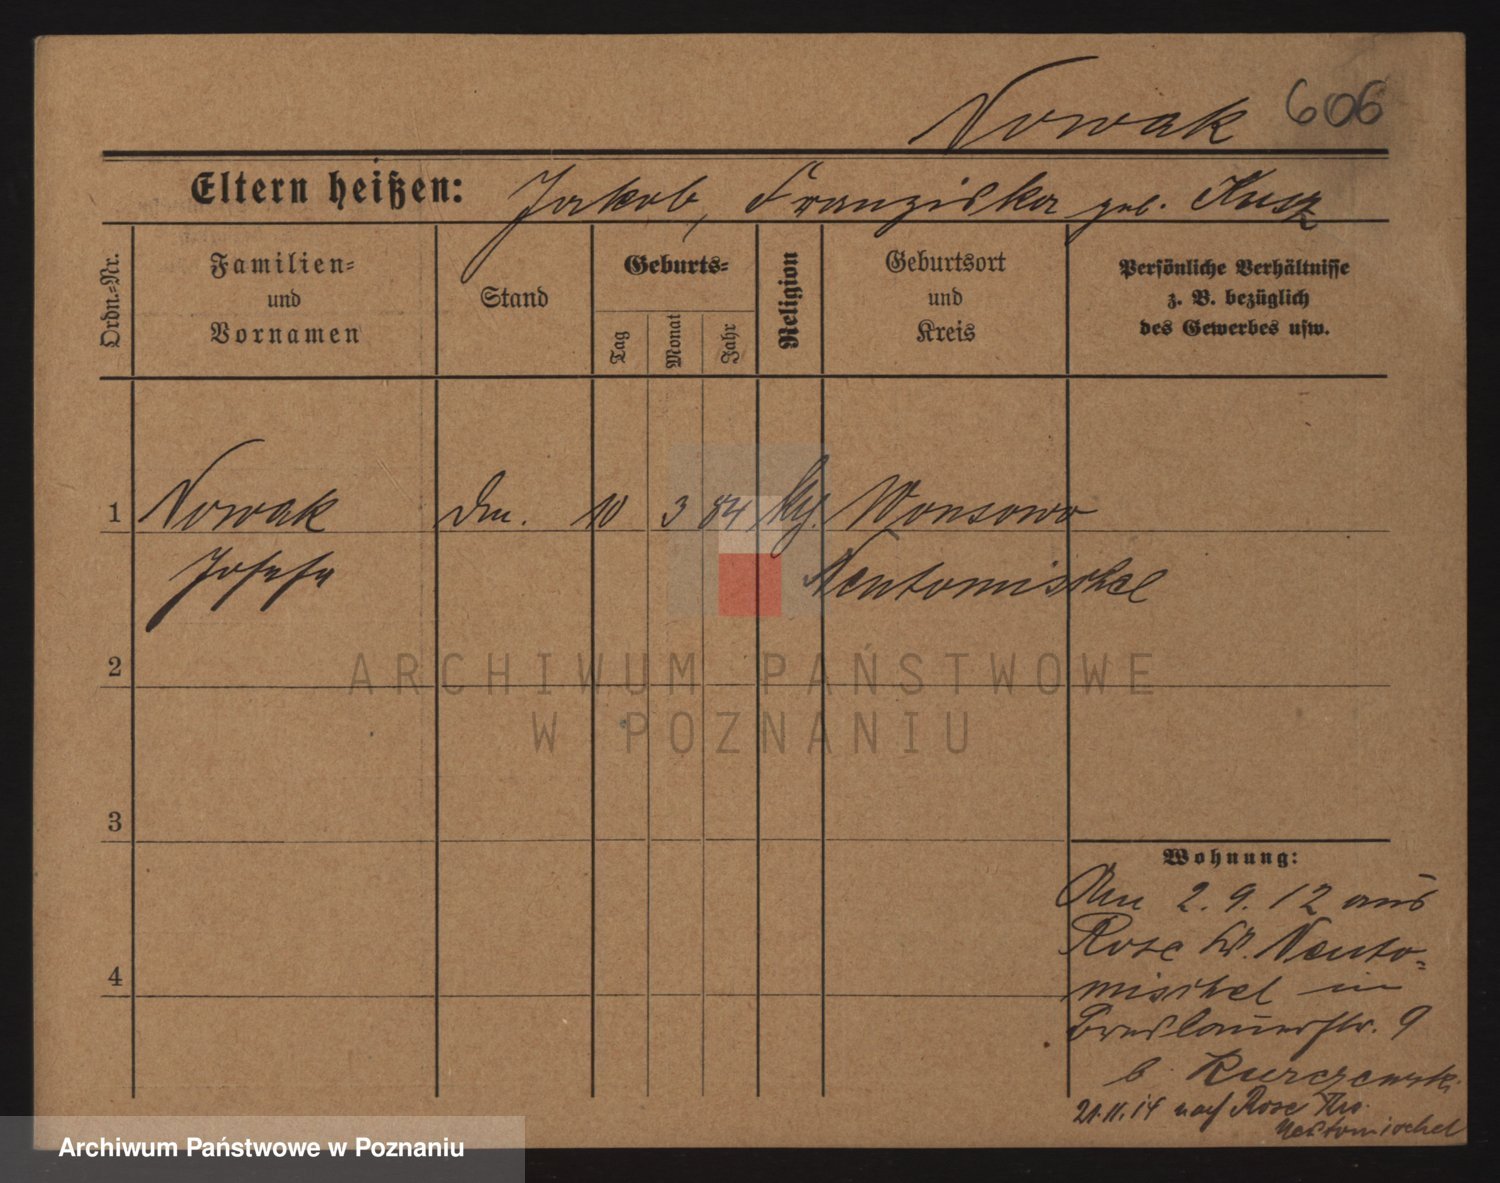 Nowak 606
Eltern heißen: Jakob, Franziska geb. Kusz
Ordn.=Nr.
Familien=
und
Vornamen
Stand
Geburts=
Tag
Monat
Jahr
Religion
Geburtsort
und
Kreis
Persönliche Verhältnisse
z. B. bezüglich
des Gewerbes usw.
1 Nowak 10 3 84 Wonsowo
Josefa Neutomischel
2
3
4
Wohnung:
2. 9. 12 aus
Rose Kr. Neuto=
mischel in
Breslauerstr. 9
b. Kurczewski
21.11.14 nach Rose
Neutomischel
ARCHIWUM PAŃSTWOWE
W POZNANIU
Archiwum Państwowe w Poznaniu